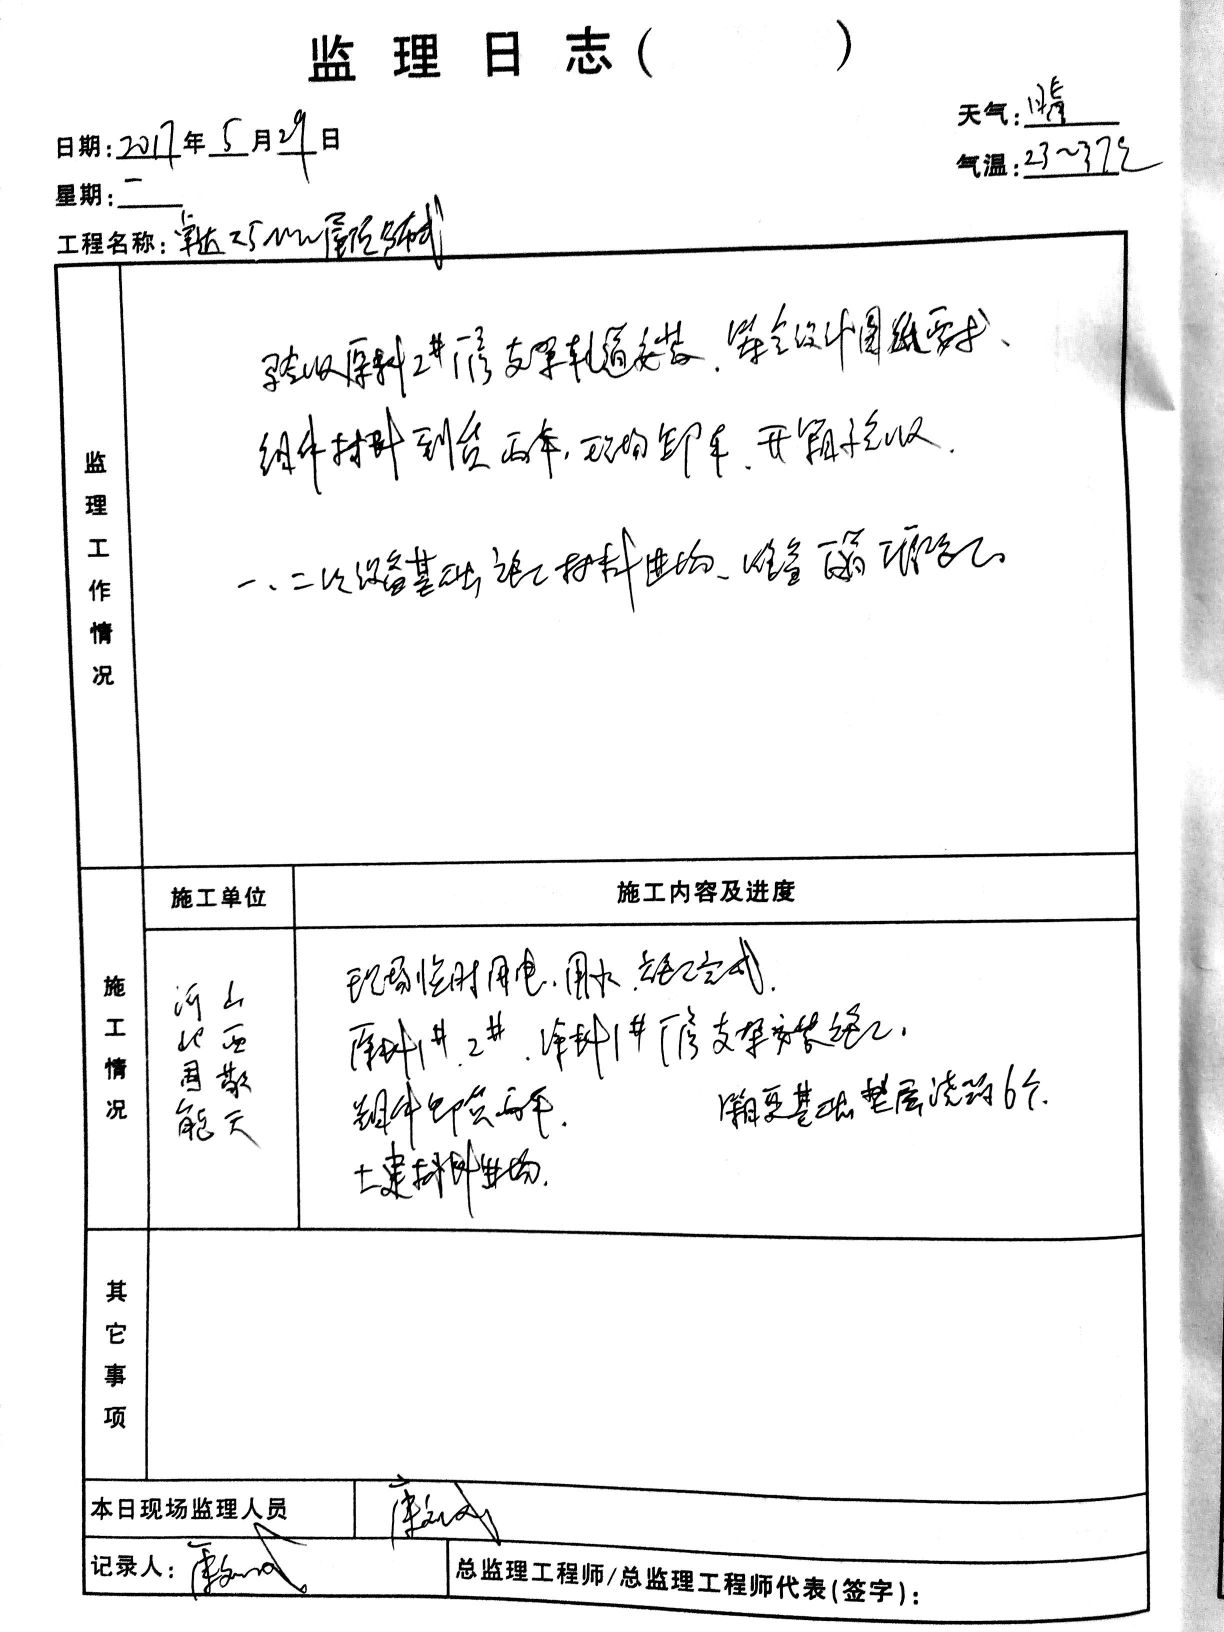 监理日志( )
日期:2017年5月29日
天气:晴
星期:一
气温:23~37℃
工程名称:卓达25MW屋顶分布式
监理工作情况
验收原料2#厂房支架轨道安装、符合设计图纸要求、
组件材料到货两车,现场卸车、开箱验收.
一、二次设备基础施工材料进场、准备
施工情况
施工单位
施工内容及进度
河北周能
山西敬天
现场临时用电、用水施工完成.
原料1#、2#、涂料1#厂房支架安装施工.
组件卸货两车.
箱变基础垫层浇筑6个.
土建材料进场.
其它事项
本日现场监理人员
记录人:
总监理工程师/总监理工程师代表(签字):